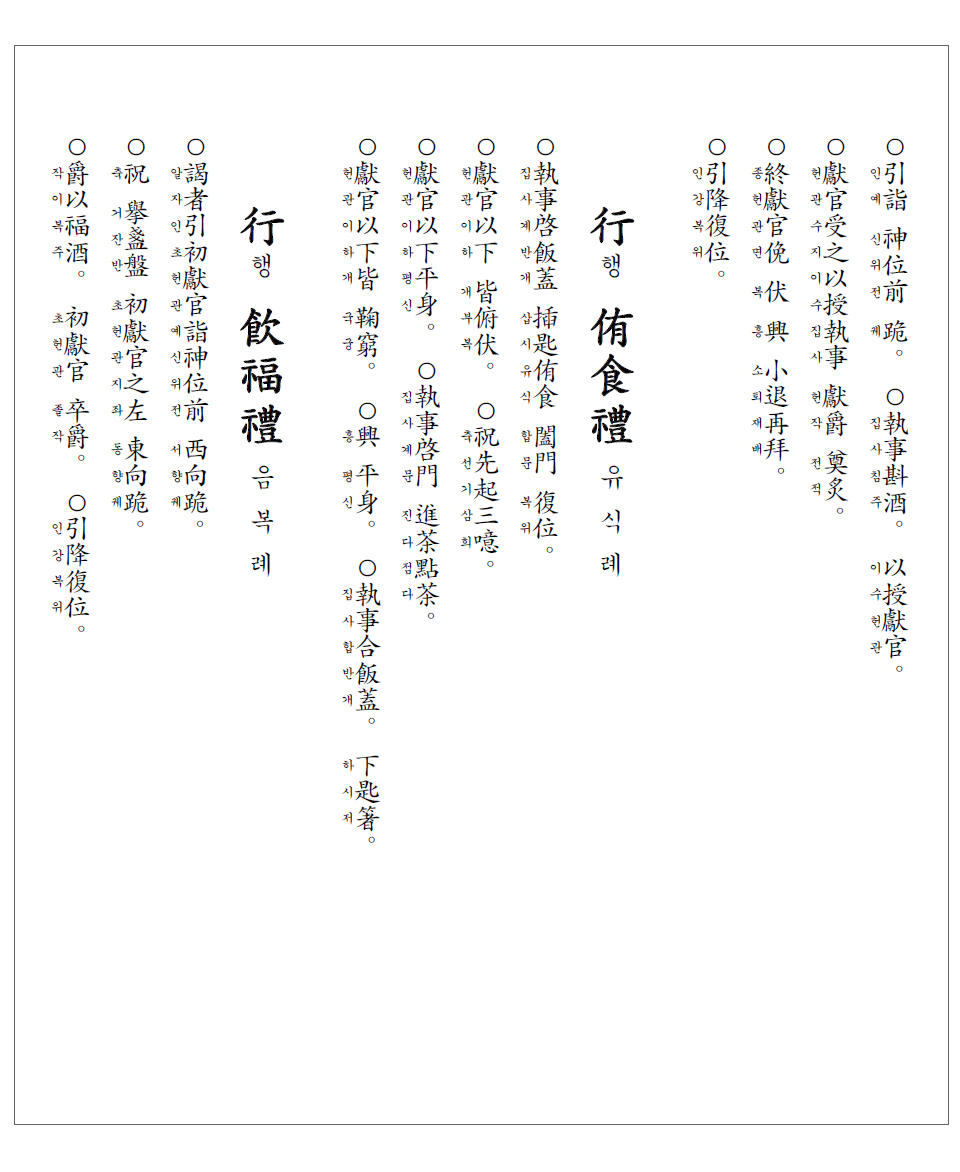 ○引詣 神位前 跪。 ○執事斟酒。 以授獻官。
인예 신위전 궤 집사침주 이수헌관
○獻官受之以授執事 獻爵 奠炙。
헌관수지이수집사 헌작 전적
○終獻官俛 伏 興 小退再拜。
종헌관면 복 흥 소퇴재배
○引降復位。
인강복위
行행 侑食禮 유식례
○執事啓飯蓋 揷匙侑食 闔門 復位。
집사계반개 삽시유식 합문 복위
○獻官以下 皆俯伏。 ○祝先起三噫。
헌관이하 개부복 축선기삼희
○獻官以下平身。 ○執事啓門 進茶點茶。
헌관이하평신 집사계문 진다점다
○獻官以下皆 鞠窮。 ○興 平身。 ○執事合飯蓋。 下匙箸。
헌관이하개 국궁 흥 평신 집사합반개 하시저
行행 飮福禮 음복례
○謁者引初獻官詣神位前 西向跪。
알자인초헌관예신위전 서향궤
○祝 擧盞盤 初獻官之左 東向跪。
축 거잔반 초헌관지좌 동향궤
○爵以福酒。 初獻官 卒爵。 ○引降復位。
작이복주 초헌관 졸작 인강복위